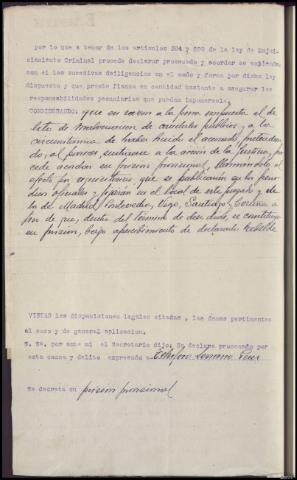 por lo que a tenor de los artículos 384 y 589 de la ley de Enjui-
ciamiento Criminal procede declarar procesado y acordar se entiendan
con él las sucesivas diligencias en el modo y forma por dicha ley
dispuesto y que preste fianza en cantidad bastante a asegurar las
responsabilidades pecuniarias que puedan imponersele.
CONSIDERANDO: que en razon a la pena impuesta al de-
lito de malversacion de caudales públicos, y a la
circunstancia de haber huido el acusado pretendien-
do, al parecer, sustraerse a la accion de la Justicia, pro-
cede acordar su prision provisional, llamándole al
efecto por requisitorias que se publicarán en los perio-
dicos oficiales y fijarán en el local de este juzgado y de
los de Madrid, Pontevedra, Vigo, Santiago y Coruña a
fin de que, dentro del termino de diez dias, se constituya
en prision, bajo apercibimiento de declararle rebelde.
VISTAS las disposiciones legales citadas, las demas pertinentes
al caso y de general aplicacion.
S. Sª. por ante mi el Secretario dijo: Se declara procesado por
esta causa y delito expresado a
Se decreta su prision provisional